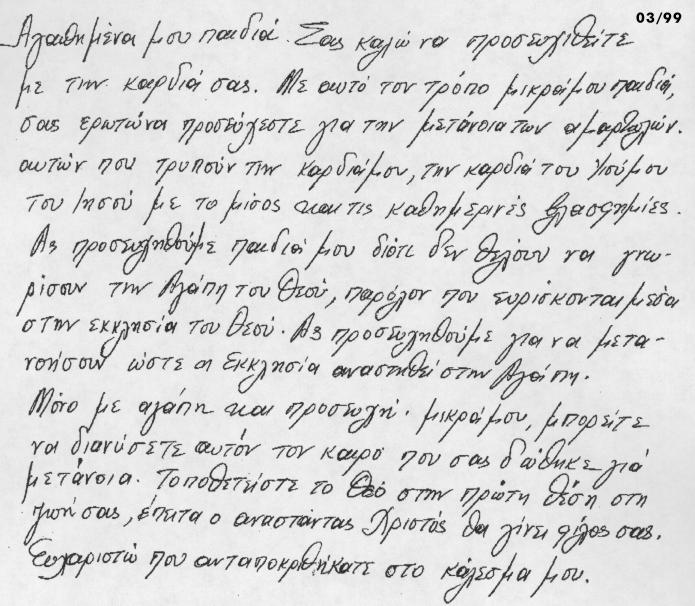 03/99
Αγαπημένα μου παιδιά. Σας καλώ να προσευχηθείτε
με την καρδιά σας. Με αυτό τον τρόπο μικρά μου παιδιά,
σας ερωτώ να προσεύχεστε για την μετάνοια των αμαρτωλών.
αυτών που τρυπούν την καρδιά μου, την καρδιά του Υιού μου
του Ιησού με το μίσος και τις καθημερινές βλασφημίες.
Ας προσευχηθούμε παιδιά μου διότι δεν θέλουν να γνω-
ρίσουν την Αγάπη του Θεού, παρόλον που ευρίσκονται μέσα
στην εκκλησία του Θεού. Ας προσευχηθούμε για να μετα-
νοήσουν ώστε η Εκκλησία αναστηθεί στην Αγάπη.
Μόνο με αγάπη και προσευχή. μικρά μου, μπορείτε
να διανύσετε αυτόν τον καιρό που σας δώθηκε γιά
μετάνοια. Τοποθετείστε το Θεό στην πρώτη θέση στη
ζωή σας, έπειτα ο αναστάντας Χριστός θα γίνει φίλος σας.
Ευχαριστώ που ανταποκριθήκατε στο κάλεσμα μου.